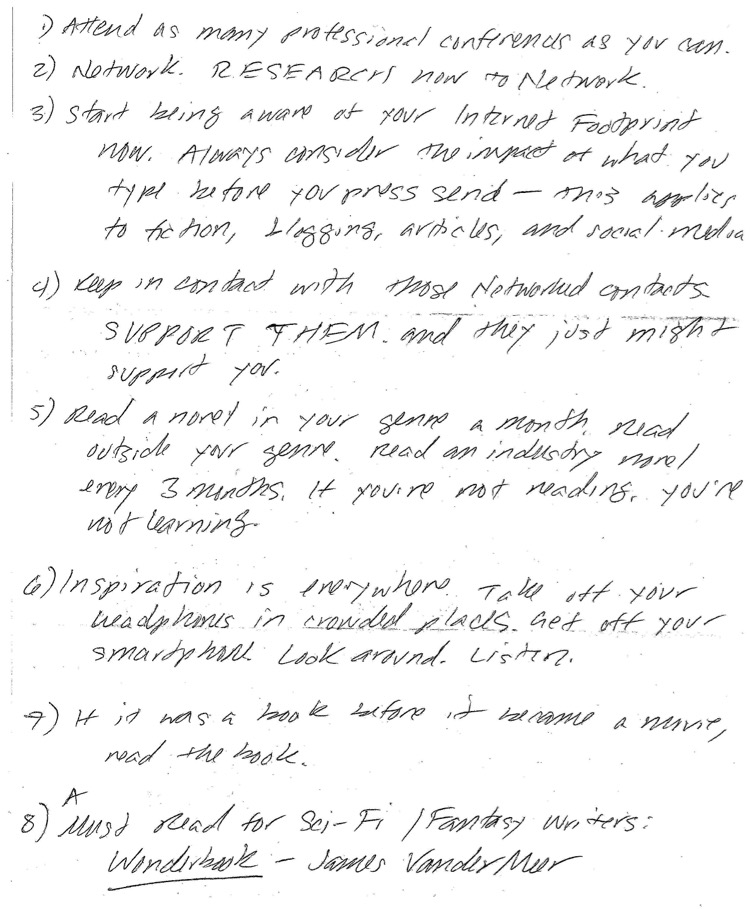 1) Attend as many professional conferences as you can.
2) Network. RESEARCH how to Network.
3) Start being aware of your Internet Footprint
now. Always consider the impact of what you
type before you press send — this applies
to fiction, blogging, articles, and social media
4) Keep in contact with those Networked contacts
SUPPORT THEM. and they just might
support you.
5) Read a novel in your genre a month. Read
outside your genre. Read an industry novel
every 3 months. If you're not reading, you're
not learning.
6) Inspiration is everywhere. Take off your
headphones in crowded places. Get off your
smartphone. Look around. Listen.
7) If it was a book before it became a movie,
read the book.
8) A Must Read for Sci-Fi / Fantasy writers:
Wonderbook – James VanderMeer